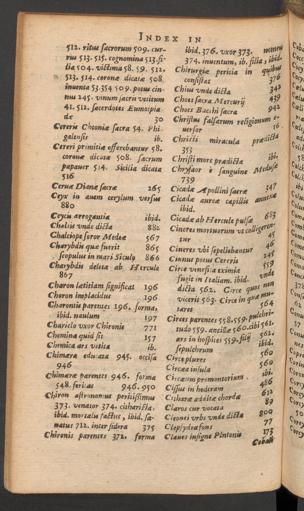 INDEX IN
512. ritus sacrorum 509. cur-
rus 513. 515. cognomina 513. fi-
lia 504. victima 58. 59. 512.
513. 514. coronæ dicatæ 508.
inuenta 53. 354 509. potus cin-
nus 245. vinum sacris vetitum
41. 512. sacerdotes Eumolpi-
dæ 30
Cereris Chtoniæ sacra 54. Phi-
galensis ib.
Cereri primitiæ offerebantur 58.
coronæ dicatæ 508. sacrum
papauer 514. Sicilia dicata
516
Ceruæ Dianæ sacræ 265
Ceyx in auem cerylum versus
880
Ceycis arrogantia ibid.
Chalcis vnde dicta 882
Chalciope soror Medeæ 567
Charybdis quæ fuerit 865
scopulus in mari Siculo 866
Charybdis deleta ab Hercule
867
Charon lætitiam significat 196
Charon implacidus 196
Charontis parentes 196. forma,
ibid. naulum 197
Chariclo vxor Chironis 771
Chemina quid sit 157
Chemica ars vetita ib.
Chimæra educata 945. occisa
946
Chimæræ parentes 946. forma
548. feritas 946. 950
Chiron astronomus peritissimus
373. venator 374. citharista.
ibid. mortalis factus, ibid. sa-
natus 712. inter sidera 375
Chironis parentes 372. forma
ibid. 376. vxor 373.
374. inuentum, ib. filia; ibid.
Chirurgiæ peritia in quibus
consistat 376
Chius vnde dicta 342
Choes sacra Mercurij 439
Choes Bacchi sacra 942
Christus falsarum religionum e-
uersor 16
Christi miracula prædicta
353
Christi mors prædicta ibid.
Chrysaor è sanguine Medusæ
739
Cicadæ Apollini sacræ 347
Cicadæ aureæ capillis annexæ
ibid.
Cicadæ ab Hercule pulsæ 623
Cineres mortuorum vt collige-
tur 45
Cineres vbi sepeliebantur 46
Cinnus potus Cereris 245
Circe venefica eximia 559
fugit in Italiam, ibid. vnde
dicta 562. Circe quas non
viceris 563. Circe in quæ mu-
taret 564
Circes parentes 558. 559. pulchri-
tudo 559. ancillæ 560. cibi 561.
ars in hospites 559. filij 562.
sepulchrum ibid.
Circe plures 560
Circæa insula 560
Circæum promontorium ibi.
Cissus in hederam 486
Cithara ædita chordæ 612
Claros cur vocata 89
Cleonæ vrbs vnde dicta 800
Clepsydræ fons 77
Claues insigne Plutonis 173